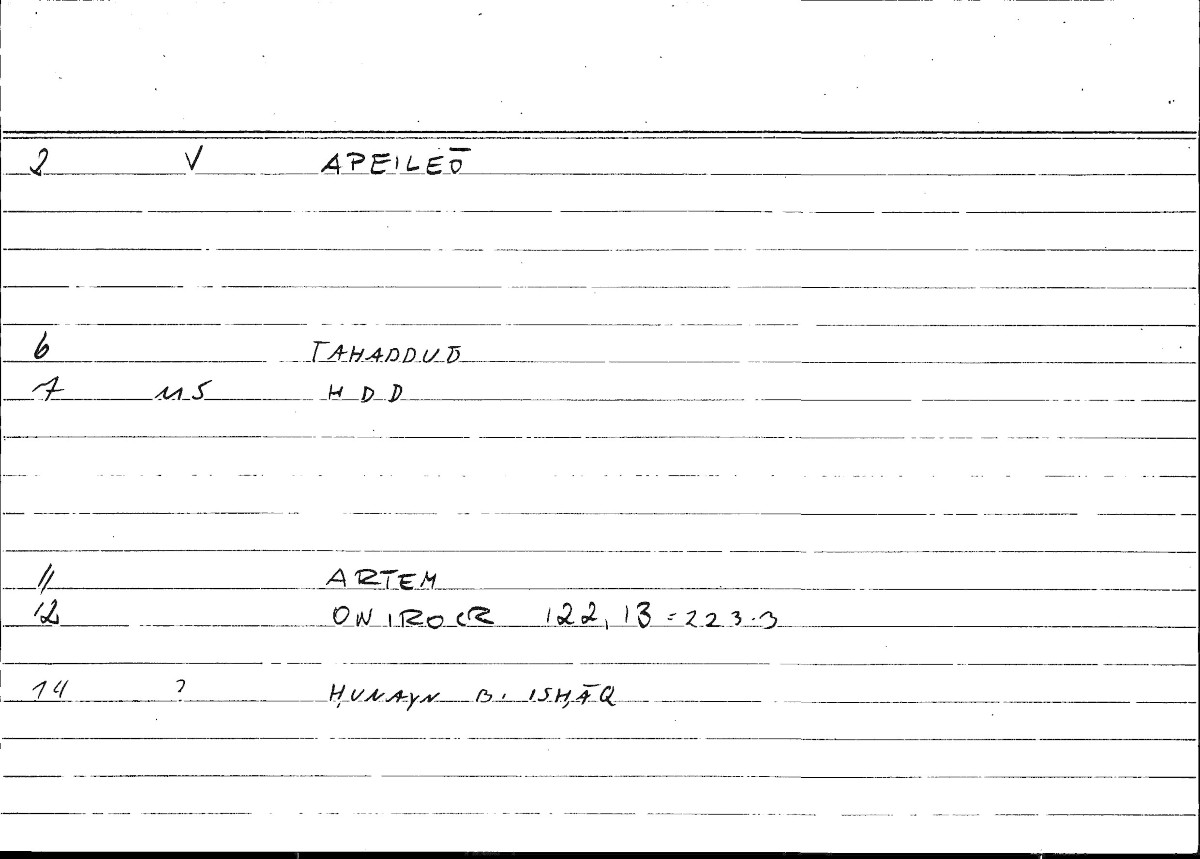 2 V APEILEŌ
6 TAHADDUD
7 MS HDD
11 ARTEM
12 ONIROCR 122,13=223.3
14 ? ḤUNAYN B. ISḤĀQ